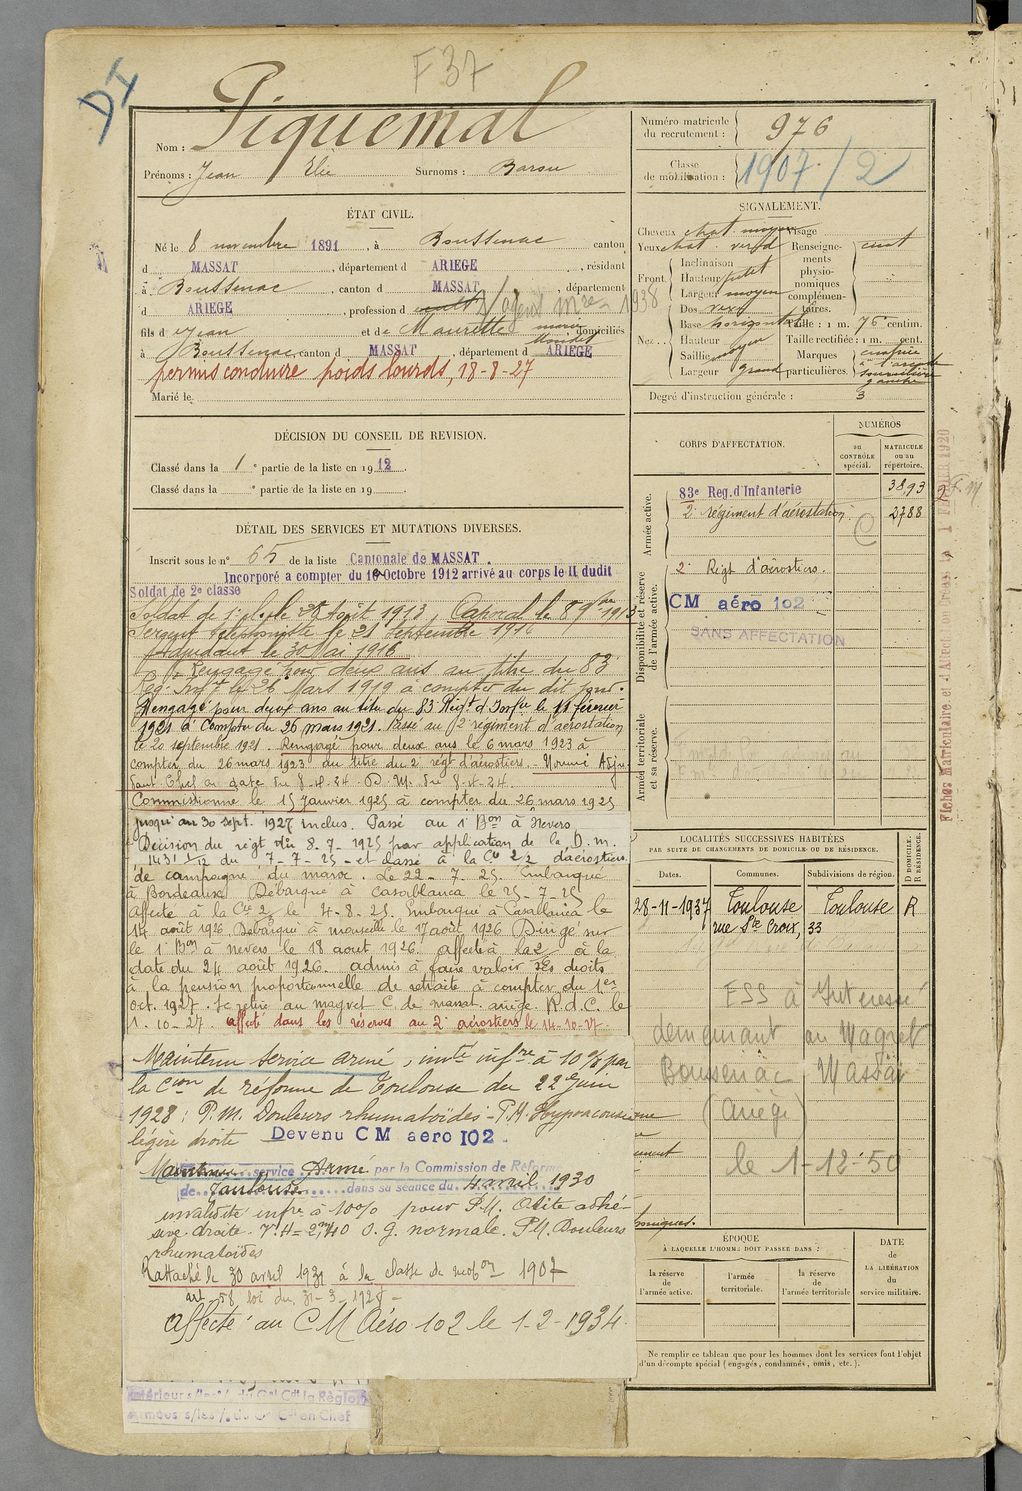 F 37
DI
Nom : Piquemal
Prénoms : Jean Elie Surnoms : Barou
ÉTAT CIVIL.
Né le 8 novembre 1891, à Boussenac canton
d MASSAT, département d ARIEGE, résidant
à Boussenac, canton d MASSAT, département
d ARIEGE, profession d cult agent 1938
fils d Jean et de Maurette Marie domiciliés
à Boussenac, canton d MASSAT, département d ARIEGE
permis conduire poids lourds, 18-8-27
Marié le
DÉCISION DU CONSEIL DE REVISION.
Classé dans la 1e partie de la liste en 1912.
Classé dans la e partie de la liste en 19
DÉTAIL DES SERVICES ET MUTATIONS DIVERSES.
Inscrit sous le n° 65 de la liste Cantonale de MASSAT.
Incorporé a compter du 10 Octobre 1912 arrivé au corps le II dudit
Soldat de 2e classe
Soldat de 1e classe Août 1913, Caporal le 8 9bre 1913
Sergent téléphoniste le 21 Septembre 1916
Adjudant le 30 Mai 1916
Rengagé pour deux ans au titre du 83
Reg. Inf le 26 Mars 1919 à compter du dit jour.
Rengagé pour deux ans au titre du 83 Régt d'Infie le 11 février
1921 à compter du 26 mars 1921. Passé au 2e régiment d'aérostation
le 20 septembre 1921. Rengagé pour deux ans le 6 mars 1923 à
compter du 26 mars 1923 au titre du 2e régt d'aérostiers. - Nommé Adju-
dant Chef à date du 8-4-24 D. M. du 8-4-24
Commissionné le 15 Janvier 1925 à compter du 26 mars 1925
jusqu'au 30 sept. 1927 inclus. Passé au 1er Bon à Nevers
Décision du régt du 8-7-1925 par application de la D. m.
1431 1/12 du 7-7-25 - et classé à la Cie 2/2 d'aérostiers
de campagne du maroc. Le 22-7-25. Embarqué
à Bordeaux Débarqué à Casablanca le 25-7-25
affecté à la Cie 2 le 4-8-25. Embarqué à Casablanca le
14 août 1926 Débarqué à marseille le 17 août 1926 Dirigé sur
le 1er Bon à nevers le 18 août 1926. affecté à la 2 à la
date du 24 août 1926. admis à faire valoir ses droits
à la pension proportionnelle de retraite à compter du 1er
oct. 1927. Se retire au magret C. de massat. ariège. R.d.C. le
1-10-27. affecté dans les réserves au 2e aérostiers le 14-10-27.
Maintenu service armé, invté infre à 10% par
la Cion de réforme de Toulouse du 22 Juin
1928 : P.M. Douleurs rhumatoïdes - P.M. Hypoacousie
légère droite Devenu CM aero 102.
Maintenu service Armé par la Commission de Réforme
de Toulouse dans sa séance du 4 avril 1930
invalidité infre à 10% pour P.M. Otite adhé-
sive droite. O.g. normale. P.M. Douleurs
rhumatoïdes
Rattaché le 30 avril 1931 à la classe de mobon 1907
art. 58 loi du 31-3-1928 -
affecté au CM Aéro 102 le 1-2-1934.
Numéro matricule du recrutement : 976
Classe de mobilisation : 1907/2
SIGNALEMENT.
Cheveux chat. moyen Visage
Yeux chat. verd
Front Inclinaison
Hauteur petit
Largeur moyen
Nez Dos rex
Base horizontal
Hauteur moyen
Saillie moyen
Largeur grand
Renseignements physionomiques complémentaires.
Taille : 1 m. 75 centim.
Taille rectifiée : 1 m. cent.
Marques particulières. cicatrice
à l'arcade
sourcilière
gauche
Degré d'instruction générale : 3
CORPS D'AFFECTATION.
NUMÉROS
au CONTRÔLE spécial.
MATRICULE ou au répertoire.
Armée active.
83e Reg. d'Infanterie 3893
2e régiment d'aérostation. 2788
Disponibilité et réserve de l'armée active.
2e Régt d'aérostiers.
CM aéro 102
SANS AFFECTATION
Armée territoriale et sa réserve.
LOCALITÉS SUCCESSIVES HABITÉES
PAR SUITE DE CHANGEMENTS DE DOMICILE OU DE RÉSIDENCE.
Dates. Communes. Subdivisions de région. D DOMICILE. R RÉSIDENCE.
28-11-1937 Toulouse Toulouse R
rue Ste Croix, 33
FSS à Intéressé
demeurant au Magret
Boussenac Massat
(Ariège)
le 1-12-50
ÉPOQUE
À LAQUELLE L'HOMME DOIT PASSER DANS :
la réserve de l'armée active.
l'armée territoriale.
la réserve de l'armée territoriale
DATE de LA LIBÉRATION du service militaire.
Ne remplir ce tableau que pour les hommes dont les services font l'objet
d'un décompte spécial (engagés, condamnés, omis, etc.).